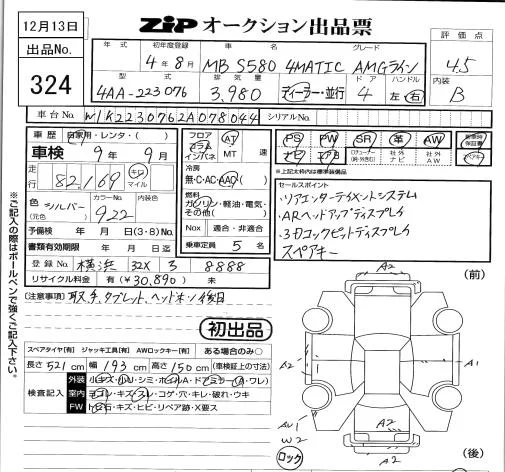 12月13日
ZIP オークション出品票
出品No.
324
年式
初年度登録
4年8月
車名
MB S580 4MATIC AMGライン
グレード
評価点
4.5
型式
4AA-223076
排気量
3,980
ディーラー・並行
ドア
4
ハンドル
左・右
内装
B
車台No.
W1K2230762A078044
シリアルNo.
車歴
自家用・レンタ・( )
車検
9年9月
走行
82,169
キロ
マイル
色
シルバー
(元色)
カラーNo.
922
内装色
予備検 年 月 日(3・8)No.
書類有効期限 年 月 日迄
登録No.
横浜 32X 3 8888
リサイクル料金 有(¥30,890) 未
フロア
コラム
インパネ
AT
MT 速
冷房
無・C・AC・AAC
燃料
ガソリン・軽油・電気・
その他( )
Nox 適合・非適合
乗車定員 5名
PS PW SR 革 AW
ナビ
社外
AW
保証書
スペアキー
※上記太枠内は標準装備品
セールスポイント
・リアエンターテイメントシステム
・ARヘッドアップディスプレイ
・3Dコックピットディスプレイ
スペアキー
[注意事項]取説、タブレット、ヘッドホン後日
初出品
スペアタイヤ[有] ジャッキ工具[有] AWロックキー[有] ある場合のみ○
長さ521cm 幅193cm 高さ150cm(車検証上の寸法)
検査記入
外装 小キズ・小U・シミ・ホイルA・ドアミラー(A・ワレ)
室内 ヨゴレ・キズ・スレ・コゲ・穴・キレ・破れ・ウキ
FW トビ石・キズ・ヒビ・リペア跡・X要ス
(前)
A2
A2
A1
A2
A2
AU1
W2
ロック
(後)
※ご記入の際はボールペンで強くご記入下さい。